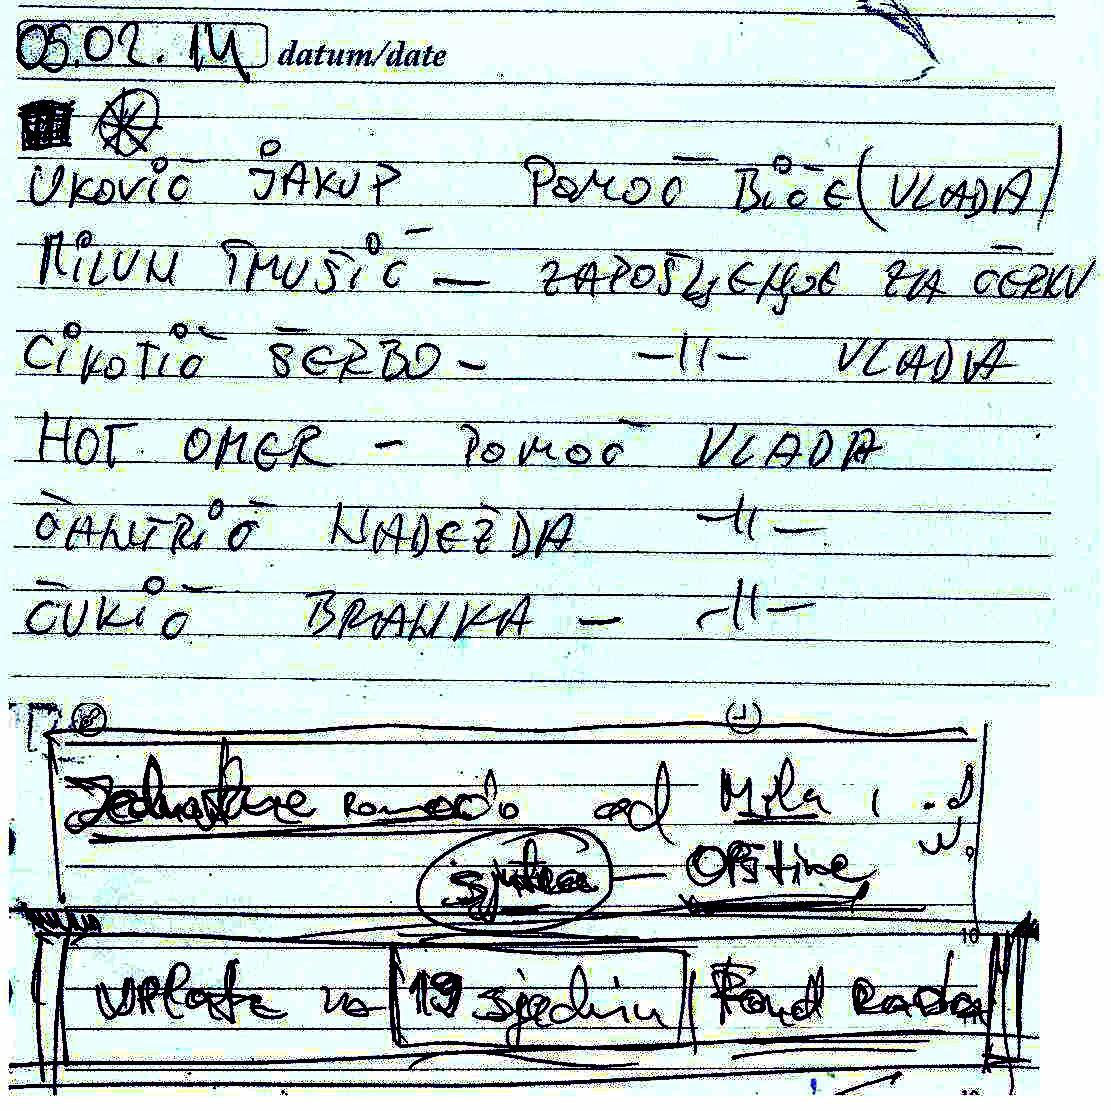 05.02.14 datum/date
UKOVIĆ JAKUP POMOĆ BIĆE (VLADA)
MILUN TMUŠIĆ — ZAPOŠLJENJE ZA ĆERKU
CIKOTIĆ ŠERBO - -11- VLADA
HOT OMER - POMOĆ VLADA
ČANTRIĆ NADEŽDA -11-
ČUKIĆ BRANKA - -11-
Jednokratne pomoći od Mila i
sjutra — Opštine
10
uplate za 19 sjednicu Fond rada